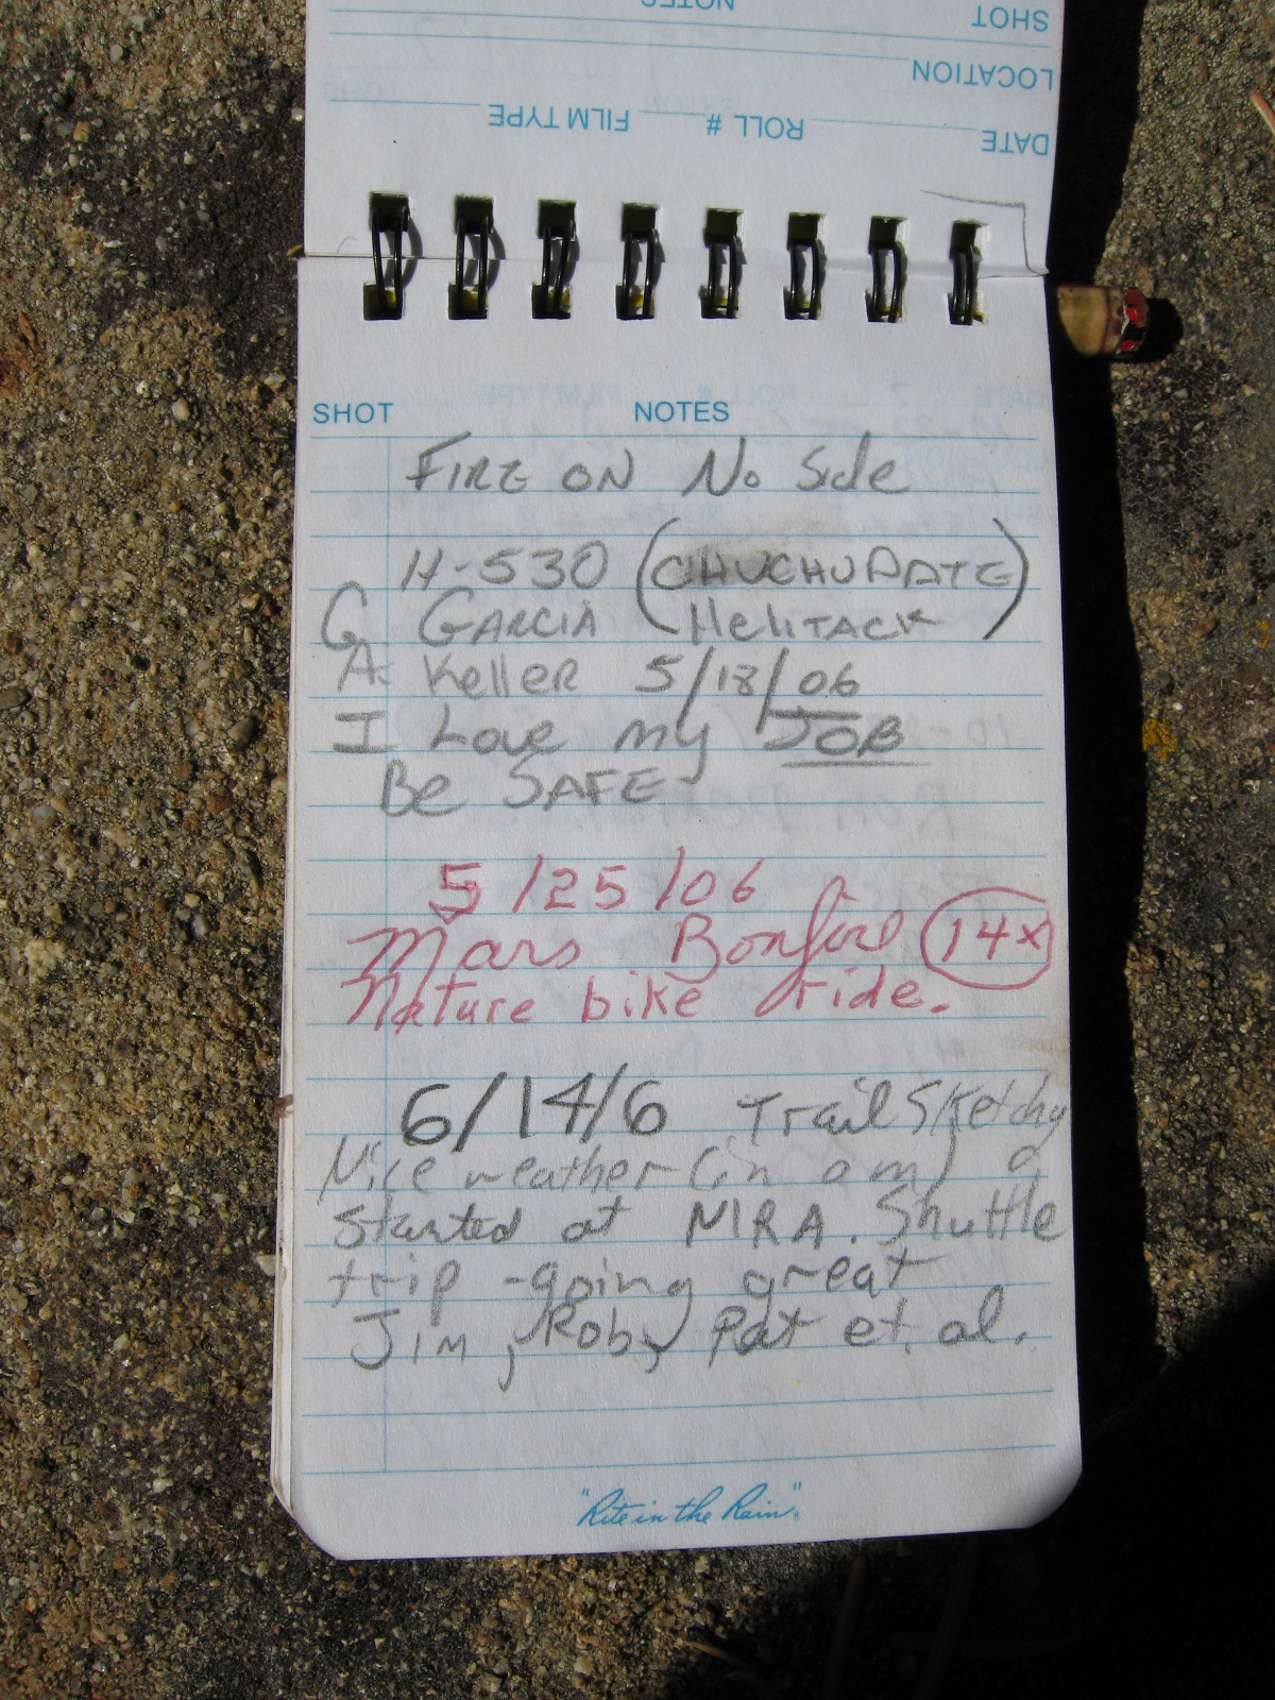 SHOT NOTES
LOCATION
DATE ROLL # FILM TYPE
SHOT NOTES
FIRE ON No Side
H-530 (CHUCHUPATE
G GARCIA HeliTACK)
A. Keller 5/18/06
I Love my JOB
Be SAFE
5/25/06
Mars Bonfire 14x
Nature bike ride.
6/14/6 Trail Sketchy
Nice weather (in am)
Started at NIRA. Shuttle
trip - going great
Jim, Rob, Pat et. al.
"Rite in the Rain"